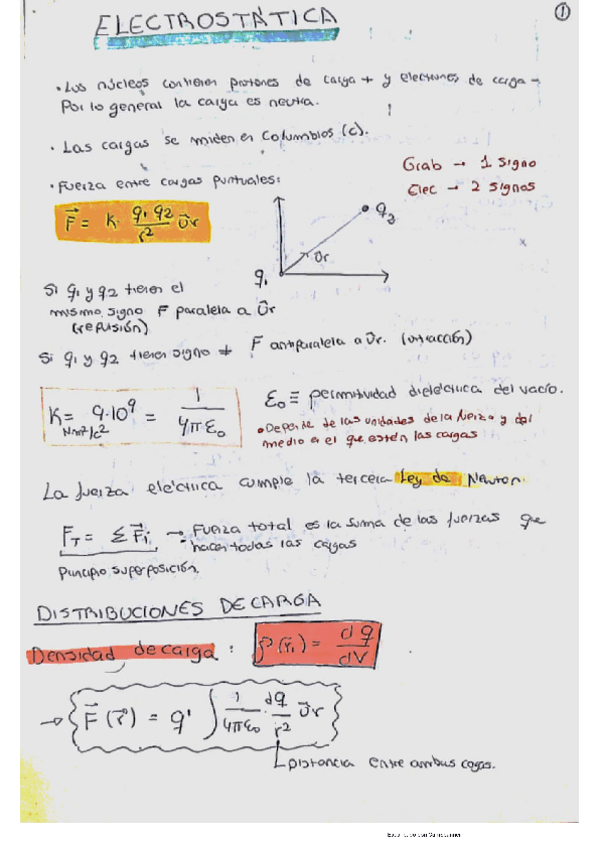 ELECTROSTÁTICA
1
• Los núcleos contienen protones de carga + y electrones de carga -
Por lo general la carga es neutra.
• Las cargas se miden en Columbios (c).
Grab → 1 signo
Elec → 2 signos
• Fuerza entre cargas puntuales:
F⃗ = K · q₁ q₂ / r² Ûr
q₂
Ûr
q₁
Si q₁ y q₂ tienen el
mismo signo F paralela a Ûr
(repulsión)
Si q₁ y q₂ tienen signo ≠ F antiparalela a Ûr. (atracción)
K = 9·10⁹ = 1 / 4πε₀
Nm²/c²
ε₀ ≡ permitividad dieléctrica del vacío.
• Depende de las unidades de la fuerza y del
medio en el que estén las cargas
La fuerza eléctrica cumple la tercera Ley de Newton.
F_T = Σ F⃗i → Fuerza total es la suma de las fuerzas que
hacen todas las cargas
Principio superposición.
DISTRIBUCIONES DE CARGA
Densidad de carga : ρ(r₁) = dq / dV
→ F⃗(r⃗) = q' ∫ 1/4πε₀ · dq/r² Ûr
Distancia entre ambas cargas.